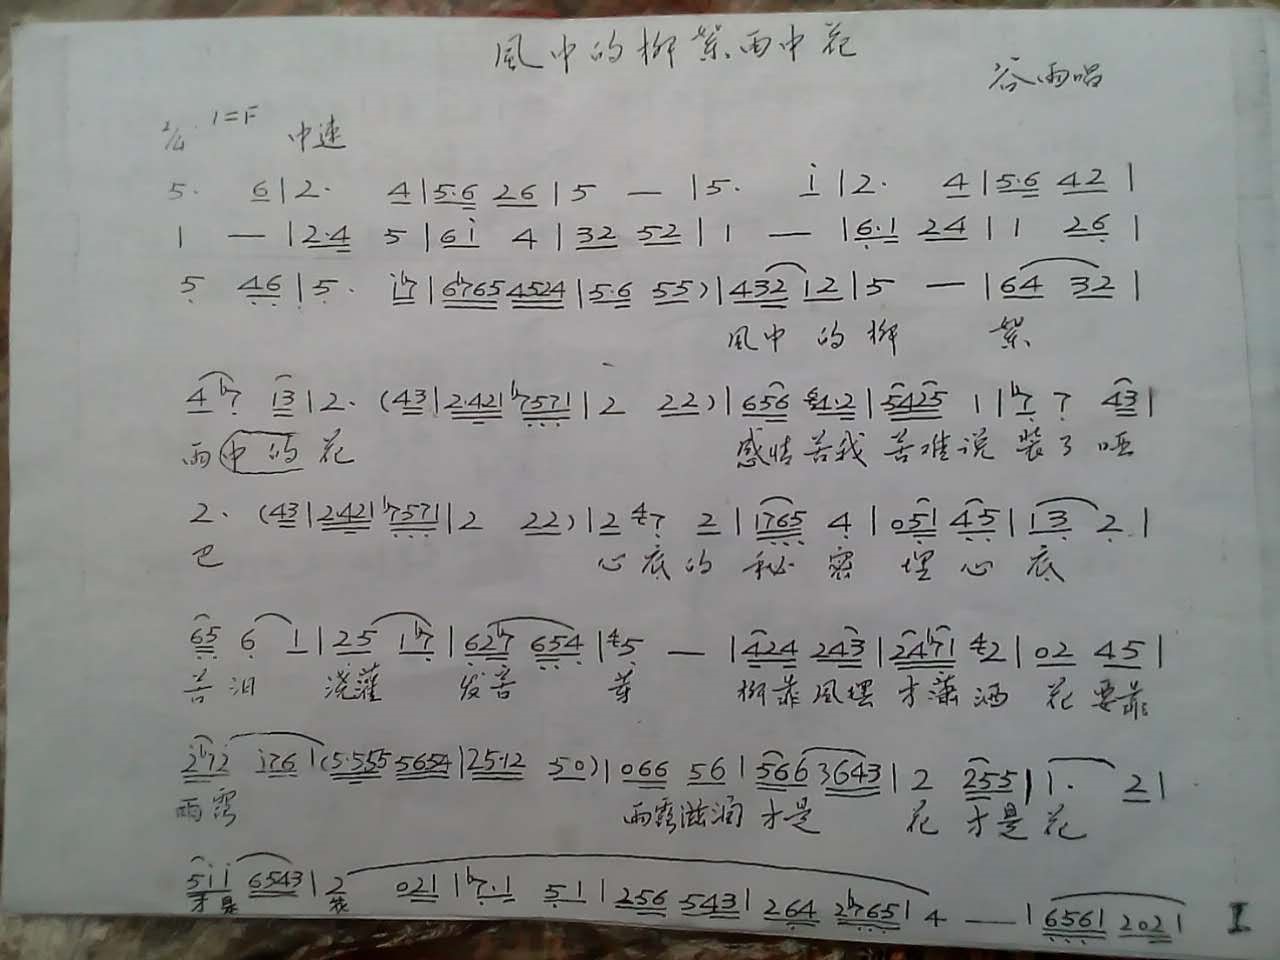 風中的柳絮雨中花
谷雨唱
2/4 1=F 中速
5· 6|2· 4|5·6 26|5 — |5· i|2· 4|5·6 42|
1 — |2·4 5|6i 4|32 52|1 — |6·1 24|1 26|
5 46|5· i♭7|6♭765 4524|5·6 55)|432 12|5 — |64 32|
風中 的柳 絮
4♭7 13|2· (43|2·421 ♭7571|2 22)|656 4·2|5425 1|♭7 7 43|
雨中的花 感情苦我 苦难说 装了哑
2· (43|2·421 ♭7571|2 22)|2 7 2|1765 4|051 45|13 2|
巴 心底的 秘密 埋心底
65 6 1|25 1♭7|62♭7 654|5 — |424 243|24♭71 2|02 45|
苦泪 浇灌 发苦芽 柳靠風摆 才潇洒 花要靠
2♭72 i76|(5·555 5654|25·12 50)|066 56|566 3643|2 255|1· 2|
雨露 雨露滋润 才是 花 才是花
5ii 6543|2 021|♭7·1 51|256 543|264 2♭765|4 — |6561 2021|
才是 花
I